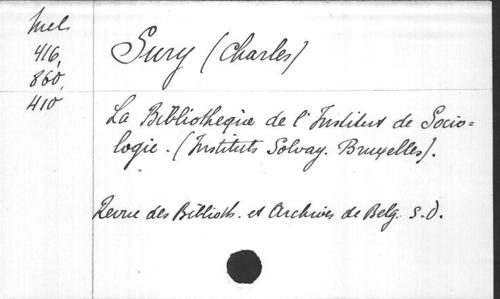 Mel
416,
860,
410
Sury (Charles)
La Bibliothèque de l'Institut de Socio=
logie. (Instituts Solvay. Bruxelles).
Revue des Biblioth. et Archives de Belg. s.d.